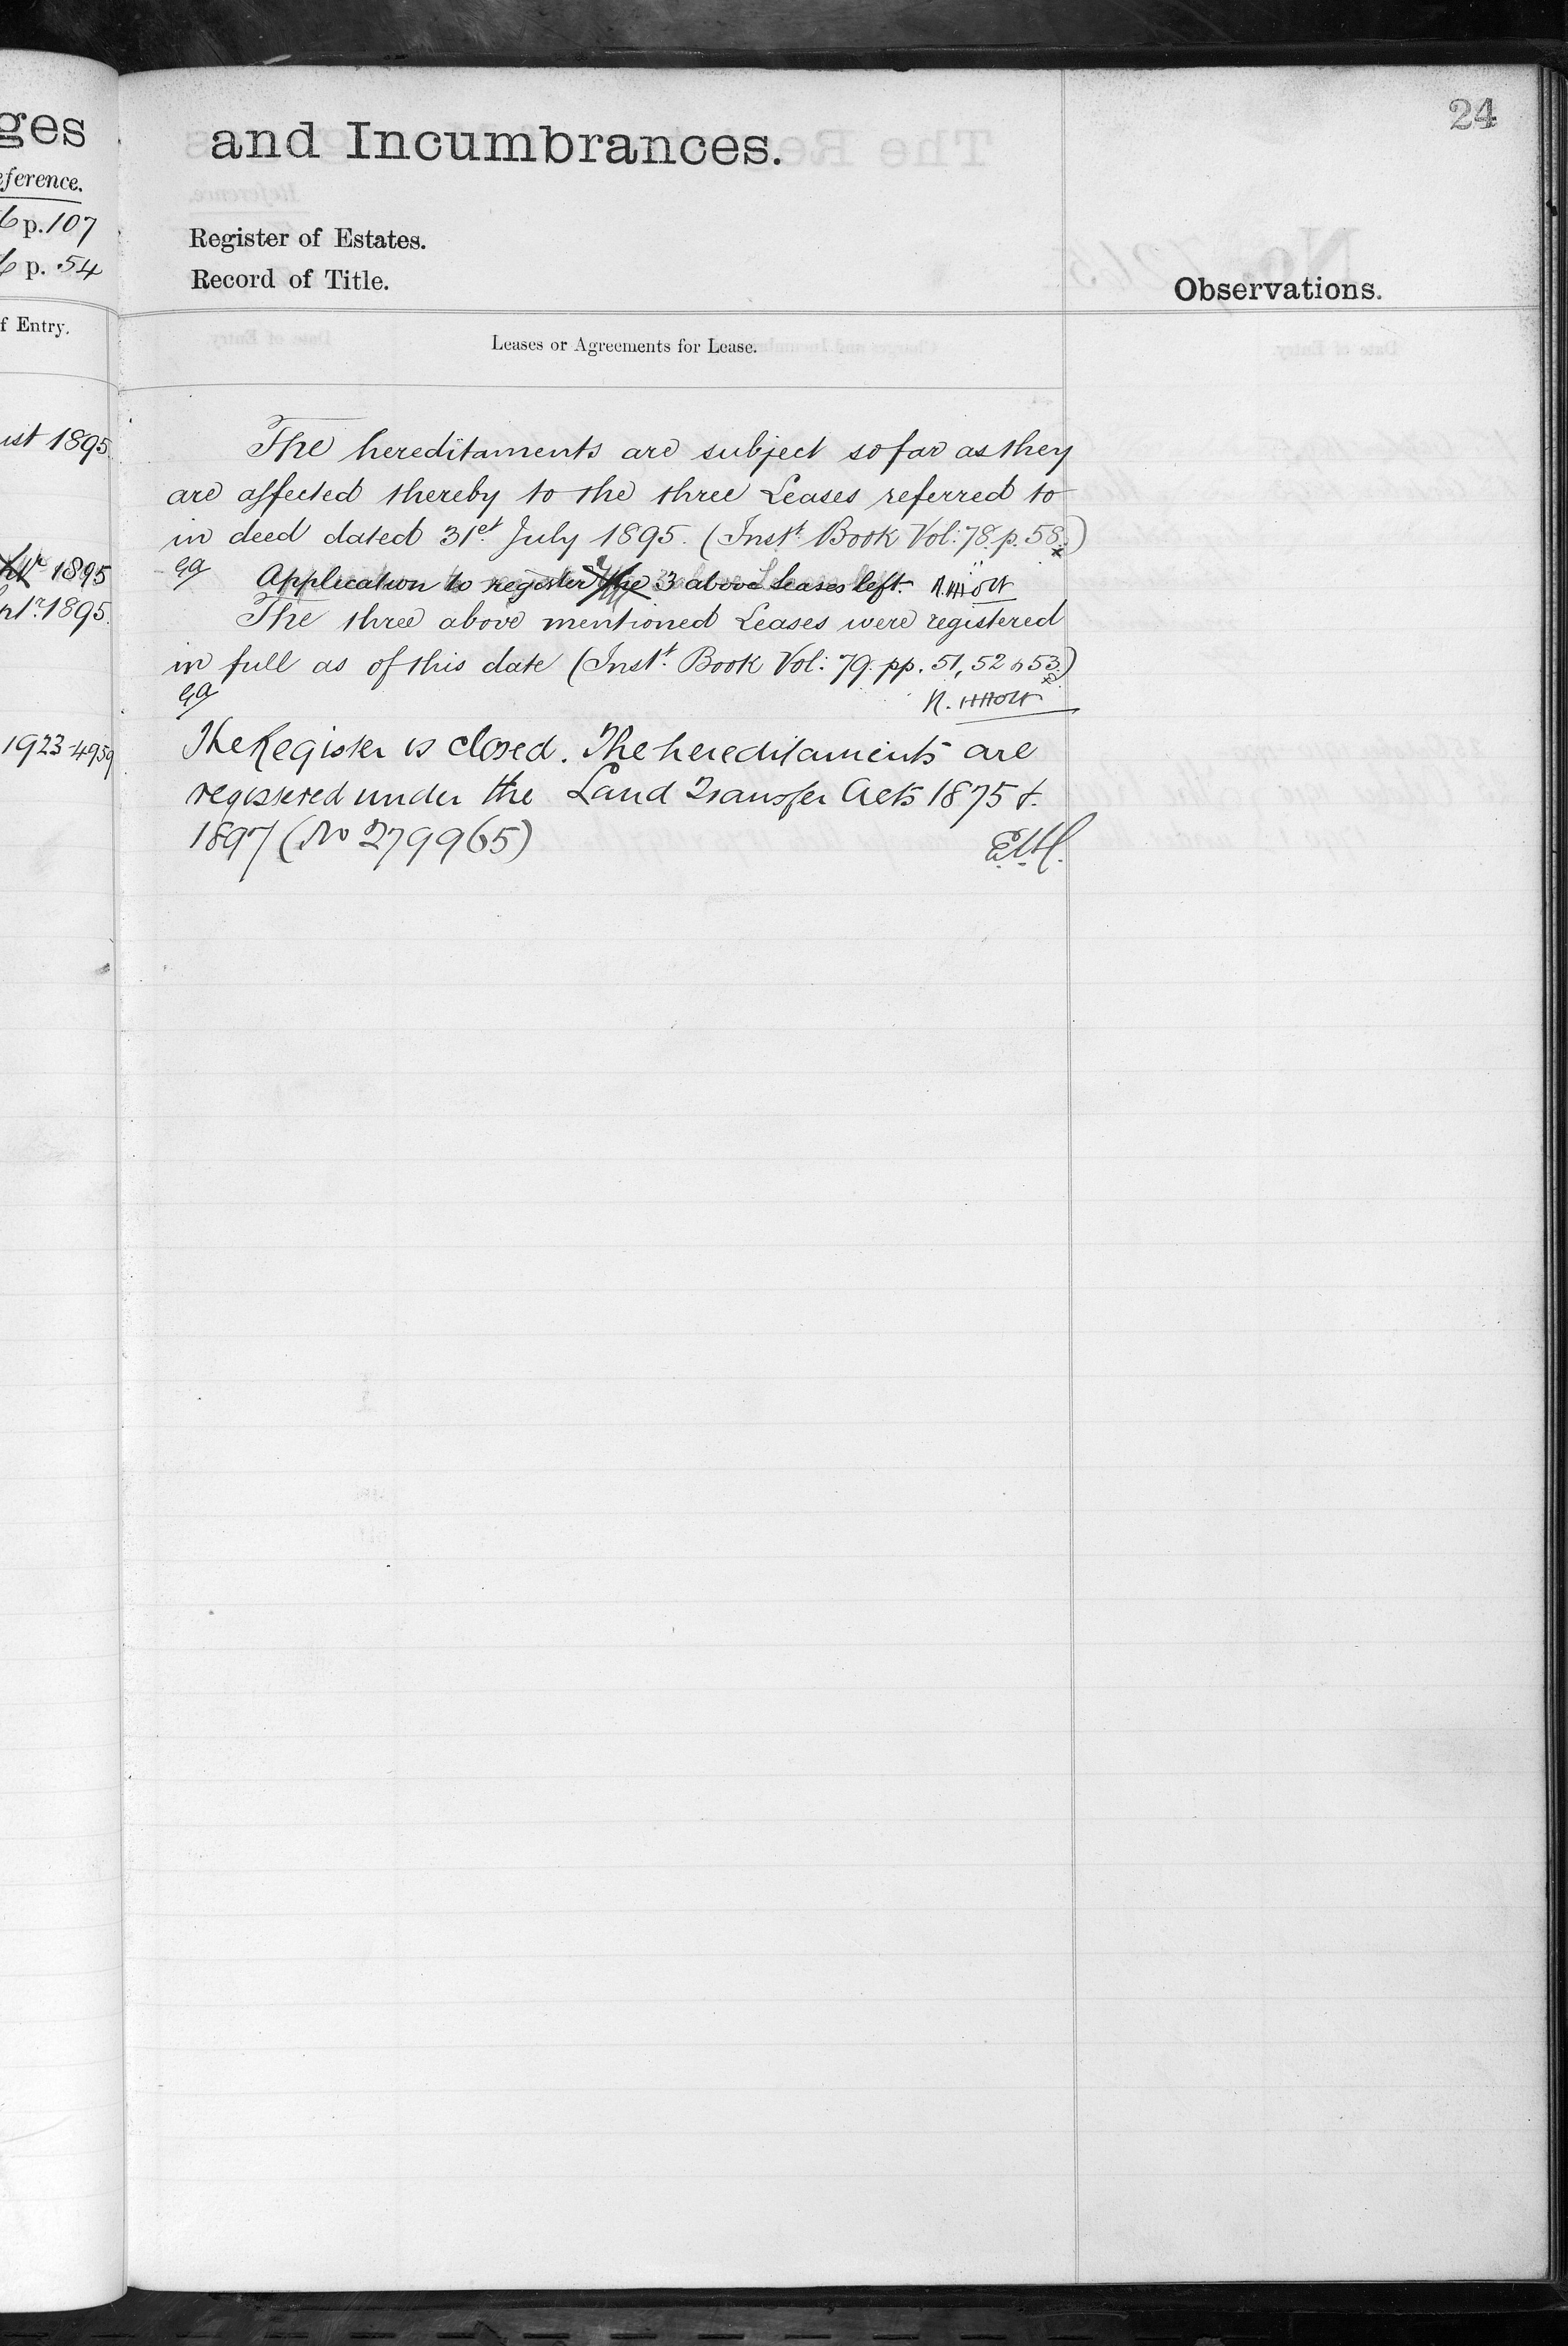 24
ges
and Incumbrances.
eference.
p. 107
p. 54
Register of Estates.
Record of Title.
Observations.
f Entry.
Leases or Agreements for Lease.
ust 1895.
The hereditaments are subject so far as they
are affected thereby to the three Leases referred to
in deed dated 31st July 1895. (Instt. Book Vol: 78. p. 58.)
1895
Application to register the 3 above leases left.
1895.
The three above mentioned Leases were registered
in full as of this date (Instt. Book Vol: 79. pp. 51, 52 & 53.)
1923-4959
The Register is closed. The hereditaments are
registered under the Land Transfer Acts 1875 &
1897 (No 279965)